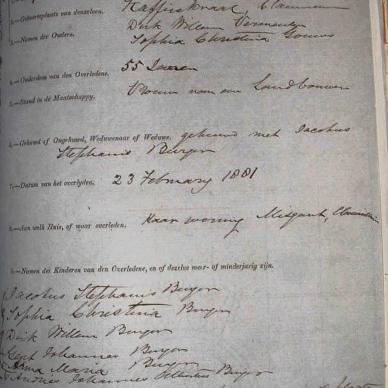 2.—Geboorteplaats van denzelven. Kafferskraal,
3.—Namen der Ouders. Dirk Willem Vermeulen
Sophia Christina Gouws
4.—Ouderdom van den Overledene. 55 Jaaren
5.—Stand in de Maatschappy. Vrouw van een Landbouwer
6.—Gehuwd of Ongehuwd, Weduwenaar of Weduwe. gehuwd met Jacobus
Stephanus Burger
7.—Datum van het overlyden. 23 February 1881
8.—Aan welk Huis, of waar overleden. haar woning
9.—Namen der Kinderen van den Overledene, en of dezelve meer- of minderjarig zijn.
Jacobus Stephanus Burger
Sophia Christina Burger
Dirk Willem Burger
Gert Johannes Burger
Anna Maria Burger
Andries Johannes Burger